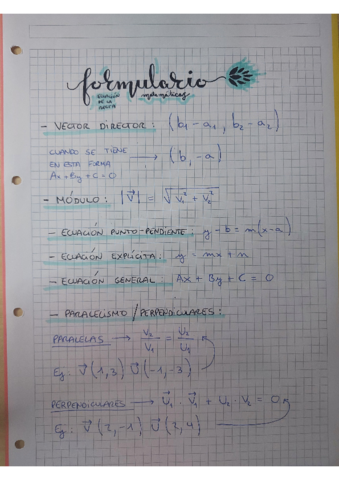 formulario
ECUACIÓN DE LA RECTA
matemáticas
- VECTOR DIRECTOR: (b₁ - a₁, b₂ - a₂)
CUANDO SE TIENE
EN ESTA FORMA → (b, -a)
Ax + By + C = 0
- MÓDULO: |V⃗| = √(V₁² + V₂²)
- ECUACIÓN PUNTO-PENDIENTE: y - b = m(x - a)
- ECUACIÓN EXPLÍCITA: y = mx + n
- ECUACIÓN GENERAL Ax + By + C = 0
- PARALELISMO / PERPENDICULARES:
PARALELAS → V₂/V₁ = U₂/U₁
Ej V⃗(1,3) U⃗(-1,-3)
PERPENDICULARES → U⃗₁ · V⃗₁ + U₂ · V₂ = 0
Ej. V⃗(2,-1) U⃗(2,4)